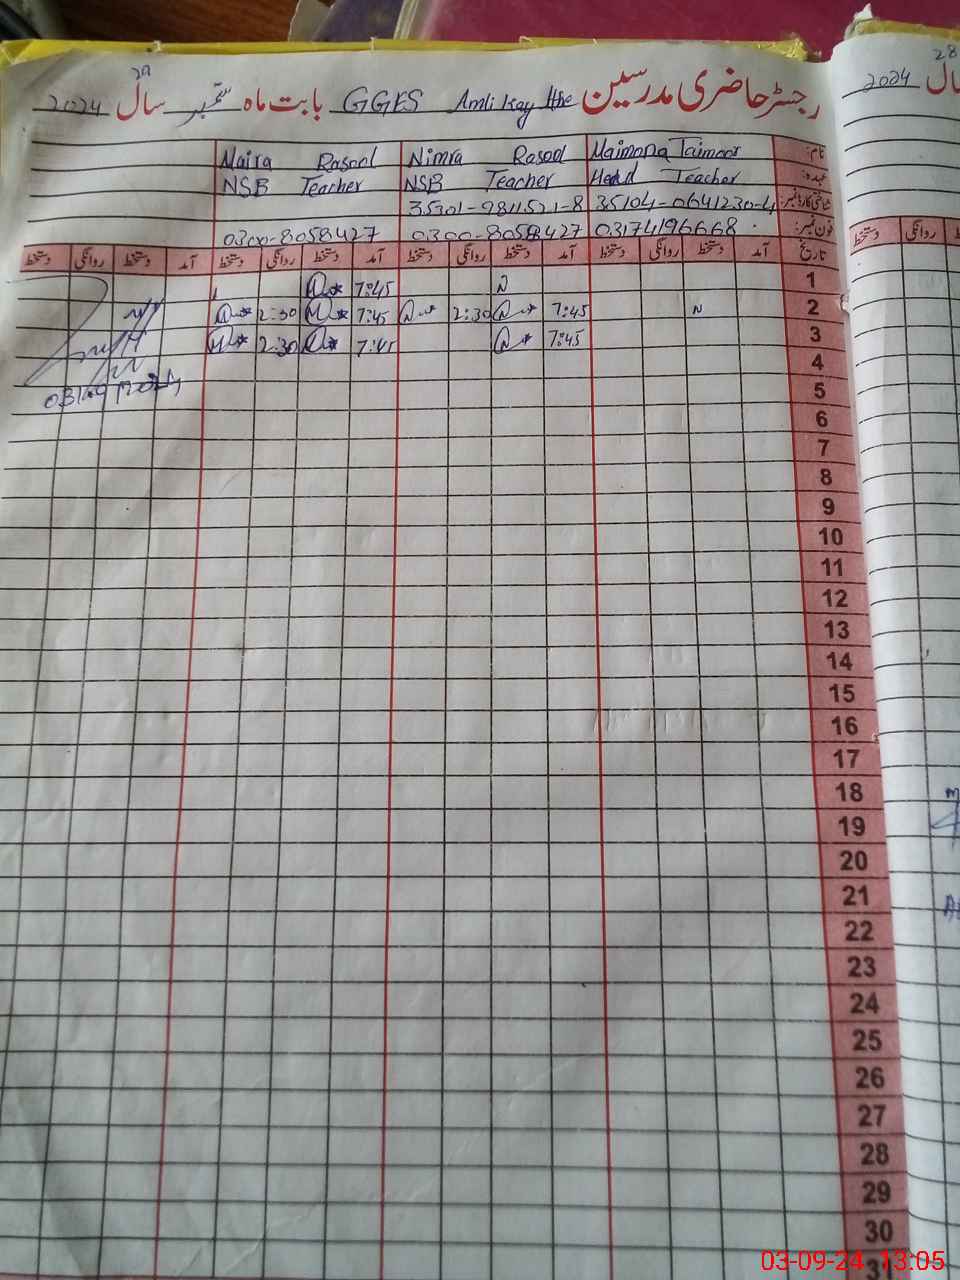 رجسٹر حاضری مدرسین GGES Amli Kay بابت ماہ ستمبر سال 2024
نام: Maimona Taimoor Nimra Rasool Naira Rasool
عہدہ: Head Teacher NSB Teacher NSB Teacher
شناختی کارڈ نمبر: 35104-0641230-4 35301-9811521-8
فون نمبر: 03174196668 0300-8058427 0300-8058427
تاریخ آمد دستخط روانگی دستخط آمد دستخط روانگی دستخط آمد دستخط روانگی دستخط آمد دستخط روانگی دستخط
1 N 7:45
2 N 7:45 2:30 7:45 2:30
3 7:45 7:45 2:30
4
5
6
7
8
9
10
11
12
13
14
15
16
17
18
19
20
21
22
23
24
25
26
27
28
29
30
31
2024 سال
روانگی دستخط
03-09-24 13:05